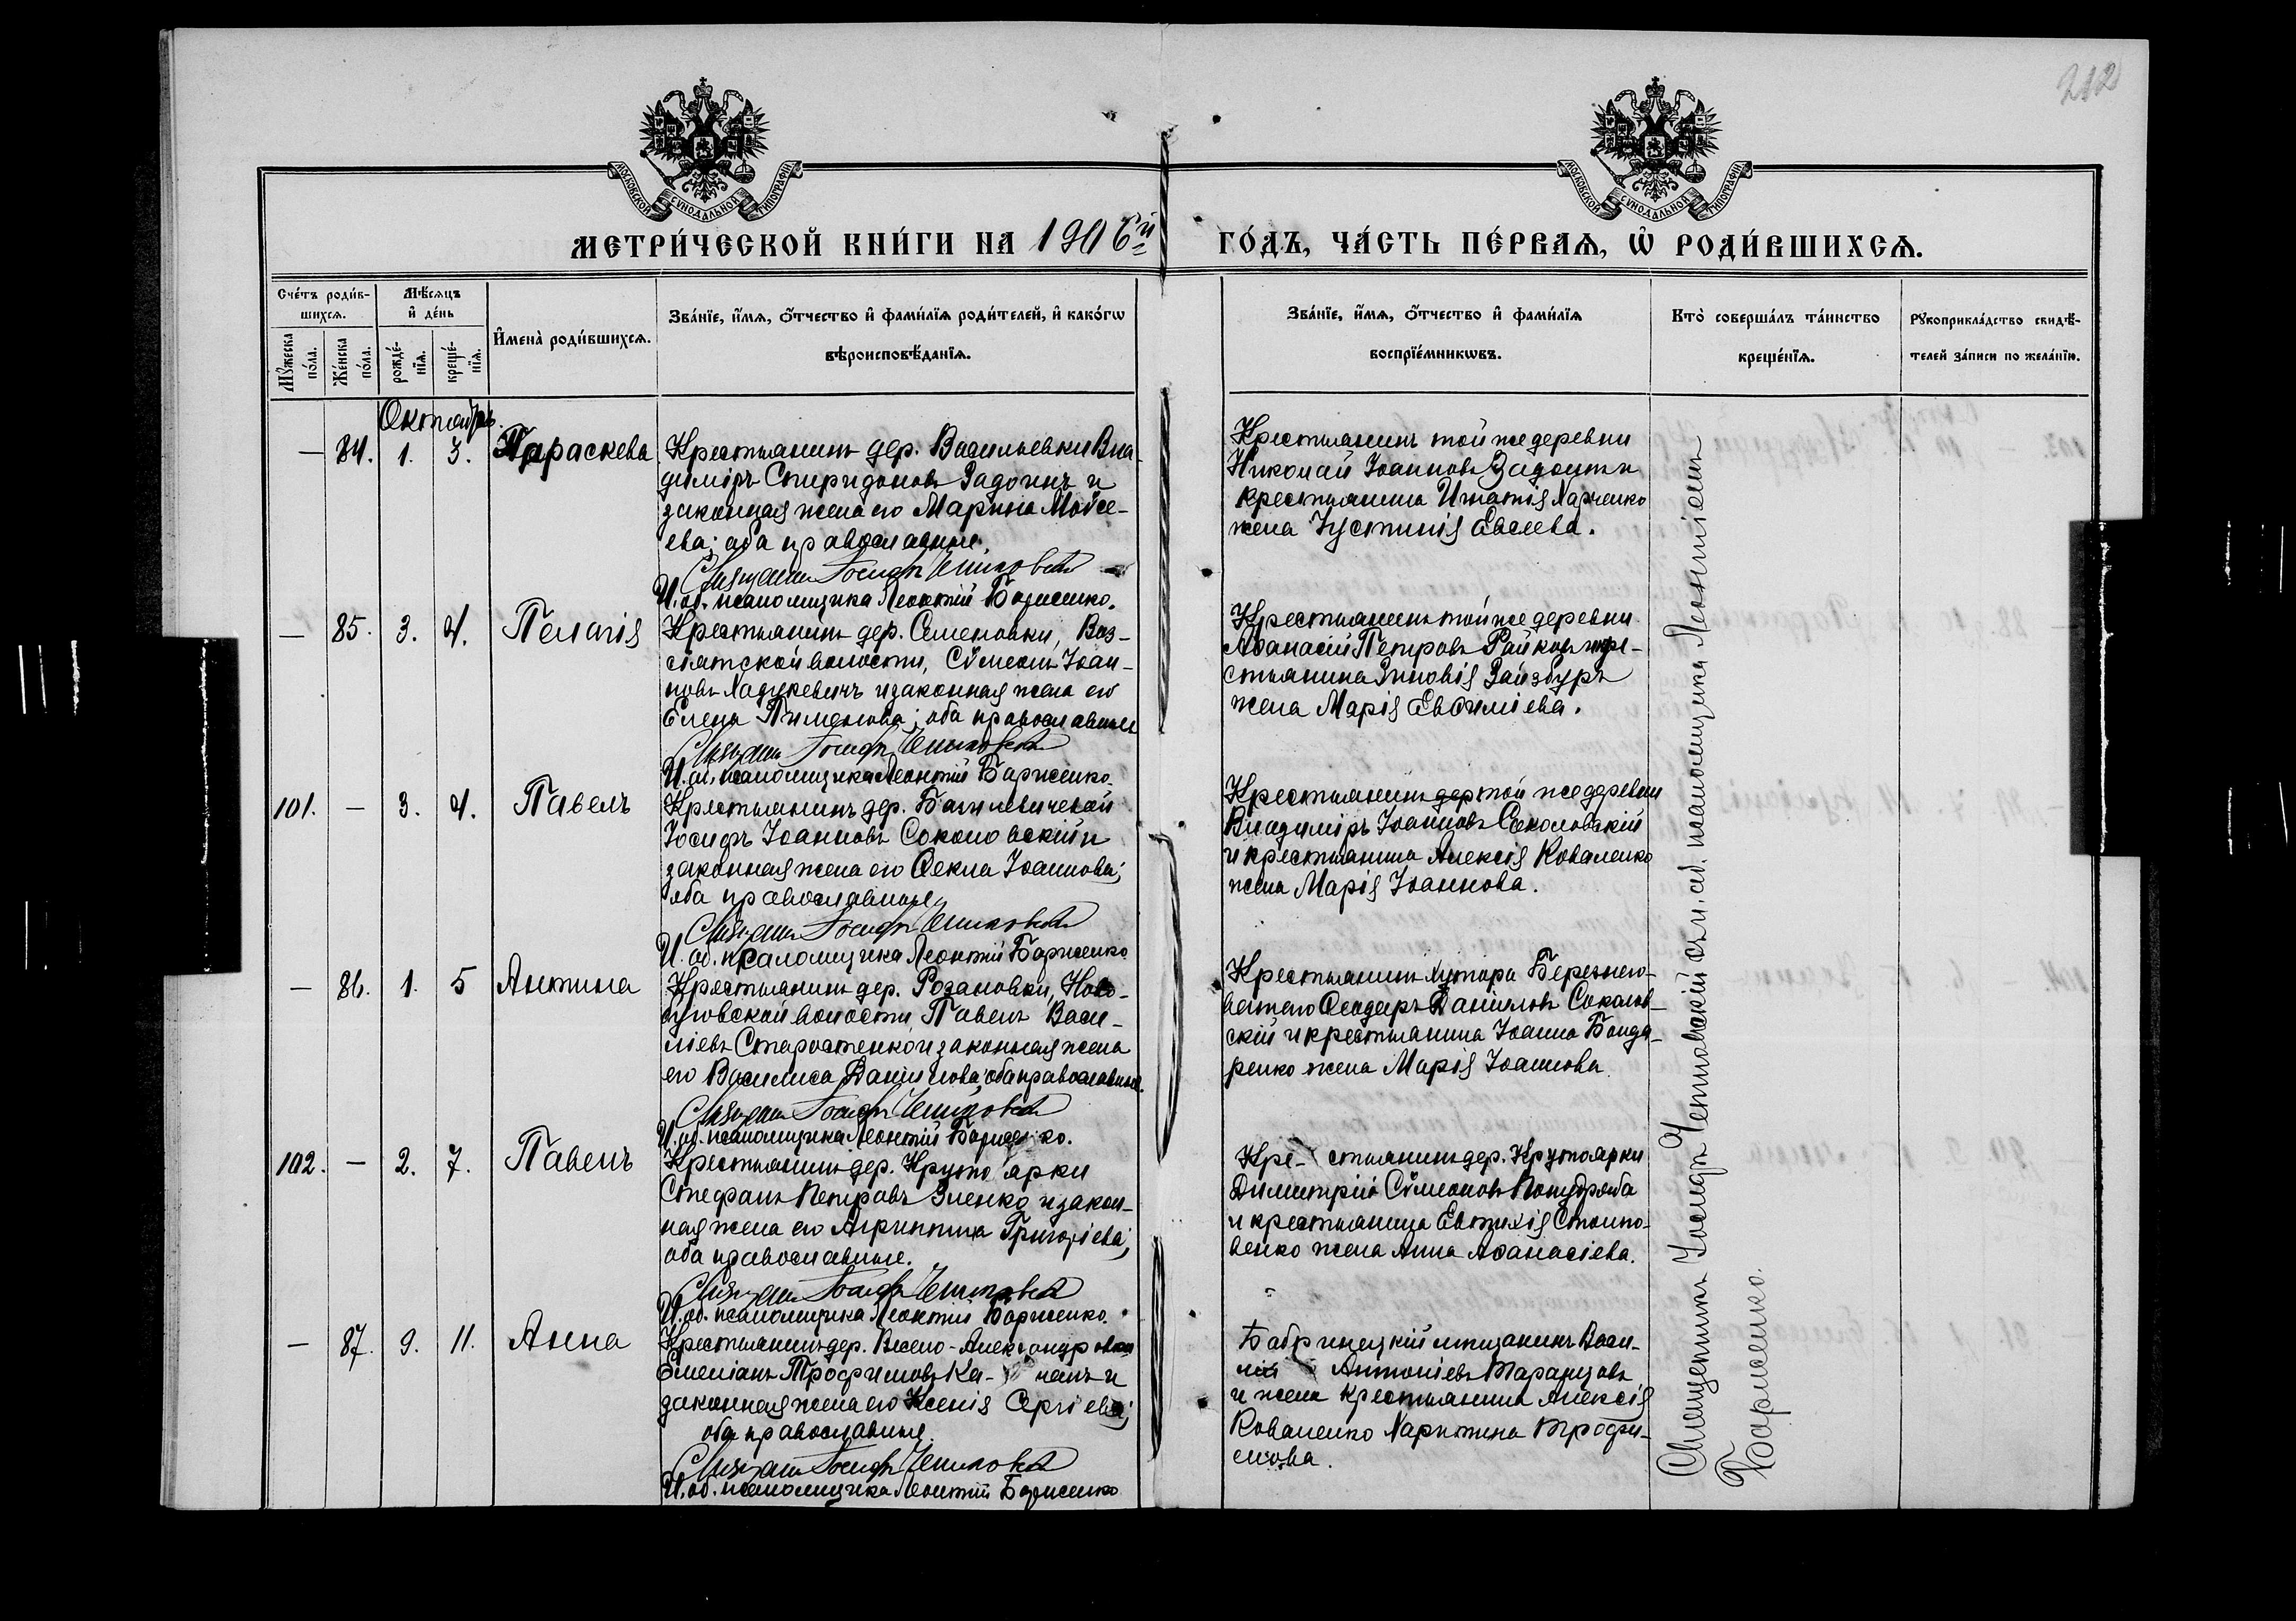 212
МОСКОВСКОЙ СѴНОДАЛЬНОЙ ТИПОГРАФІИ
МОСКОВСКОЙ СѴНОДАЛЬНОЙ ТИПОГРАФІИ
МЕТРИ́ЧЕСКОЙ КНИ́ГИ НА 1906й ГО́ДЪ, ЧА́СТЬ ПЕ́РВАѦ, Ѡ҆ РОДИ́ВШИХСѦ.
Сче́тъ роди́в-
шихсѧ.
Мꙋ́жеска по́ла.
Же́нска по́ла.
Мѣ́сѧцъ
и҆ де́нь
рожде́-
нїѧ.
креще́-
нїѧ.
И҆мена̀ роди́вшихсѧ.
Зва́нїе, и҆́мѧ, ѻ҆́тчество и҆ фами́лїѧ роди́телей, и҆ како́гѡ
вѣроисповѣ́данїѧ.
Зва́нїе, и҆́мѧ, ѻ҆́тчество и҆ фами́лїѧ
воспрїе́мникѡвъ.
Кто̀ соверша́лъ та́инство
креще́нїѧ.
Рꙋкоприкла́дство свидѣ́-
телей за́писи по жела́нїю.
Октябрь.
— 84. 1. 3. Параскева
Крестьянинъ дер. Васильевки Вла-
диміръ Спиридоновъ Задоинъ и
законная жена его Марина Мойсе-
ева; оба православные.
Священникъ Іосифъ
И. об. псаломщика Леонтій Борисенко.
Крестьянинъ той же деревни
Николай Іоанновъ и
крестьянина Игнатія Харченко
жена Іустинія Евсеева.
— 85. 3. 4. Пелагія
Крестьянинъ дер. Семеновки, Воз-
сіятской волости, Сѵмеонъ Іоан-
новъ и законная жена его
Елена Пименова; оба православные
Священникъ Іосифъ
И. об. псаломщика Леонтій Борисенко.
Крестьянинъ той же деревни
Аѳанасій Петровъ Райковъ и кре-
стьянина Зиновія
жена Марія Евѳиміева.
101. — 3. 4. Павелъ
Крестьянинъ дер.
Іосифъ Іоанновъ Соколовскій и
законная жена его Ѳекла Іоаннова;
оба православные
Священникъ Іосифъ
И. об. псаломщика Леонтій Борисенко
Крестьянинъ дер той же деревни
Владиміръ Іоанновъ Соколовскій
и крестьянина Алексія Коваленко
жена Марія Іоаннова.
— 86. 1. 5 Антина
Крестьянинъ дер. Розановки, Ново-
бугской волости, Павелъ Васи-
ліевъ Старостенко и законная жена
его Василиса Даніилова; оба православные.
Священникъ Іосифъ
И. об. псаломщика Леонтій Борисенко.
Крестьянинъ хутора
Ѳеодоръ Даніиловъ Соколов-
скій и крестьянина Іоанна Бонда-
ренко жена Марія Іоаннова
102. — 2. 7. Павелъ
Крестьянинъ дер. Крутоярки
Стефанъ Петровъ Зленко и закон-
ная жена его Агриппина Григоріева;
оба православные.
Священникъ Іосифъ
И. об. псаломщика Леонтій Борисенко.
Кре- стьянинъ дер. Крутоярки
Димитрій Сѵмеоновъ
и крестьянина Евтихія
жена Анна Аѳанасіева.
— 87. 9. 11. Анна
Крестьянинъ дер. Весело-Александровки
Емеліанъ Трофимовъ и
законная жена его Ксенія Сергіева;
оба православные.
Священникъ Іосифъ
И. об. псаломщика Леонтій Борисенко
Бобринецкій мѣщанинъ Васи-
лій Антоніевъ Таранцовъ
и жена крестьянина Алексія
Коваленко Харитина Трофи-
мова.
Священникъ Іосифъ съ и. об. псаломщика Леонтіемъ
Борисенко.